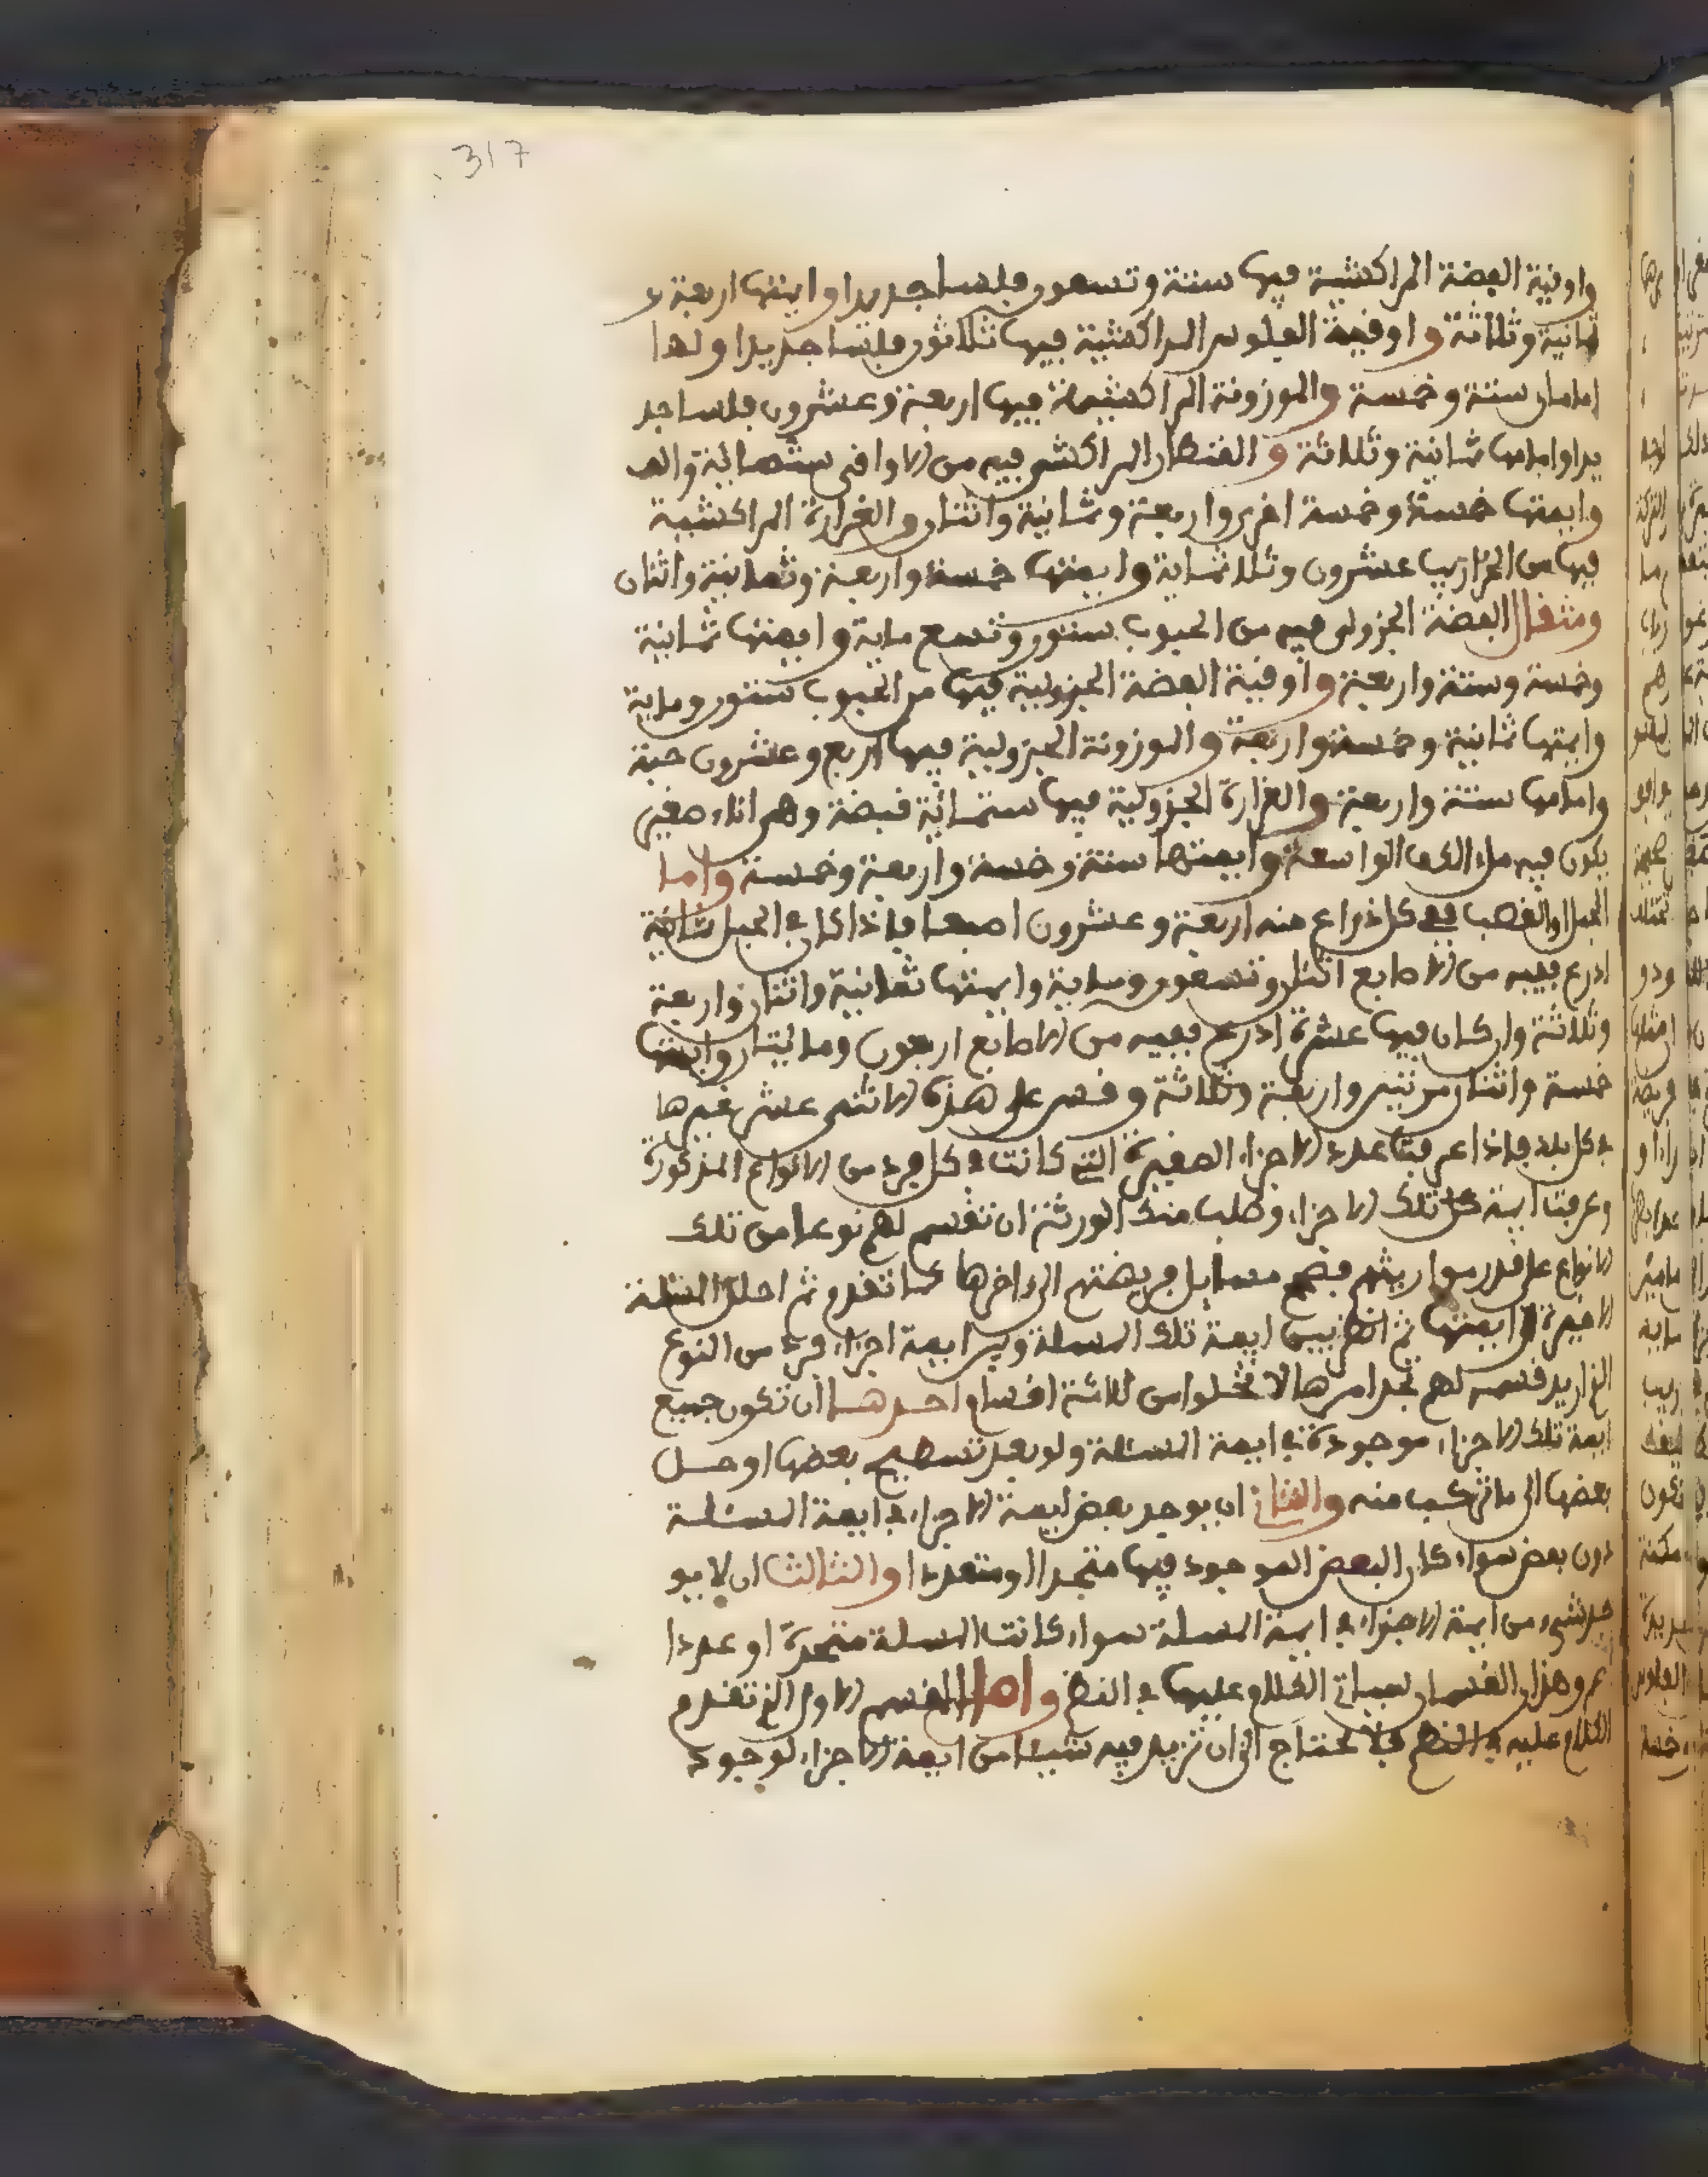 317
واوفية الفضة المراكشية فيها ستة وتسعون فلسا جديدا وايمتها اربعة و
ثمانية وثلاثة واوفية الفلوس المراكشية فيها ثلاثون فلسا جديدا ولها
امامان ستة وخمسة والموزونة المراكشية فيها اربعة وعشرون فلسا جد
يدا وامامها ثمانية وثلاثة والقنطار المراكشي فيه من الاواقي ستمائة والف
وايمتها خمسة وخمسة اخرى واربعة وثمانية واثنان والغرارة المراكشية
فيها من الخراريب عشرون وثلاثماية وايمتها خمسة واربعة وثمانية واثنان
ومثقال الفضة الجزولي فيه من الحبوب ستون وتسع ماية وايمتها ثمانية
وخمسة وستة واربعة واوقية الفضة الجزولية فيها من الحبوب ستون وماية
وايمتها ثمانية وخمسة واربعة والموزونة الجزولية فيها اربع وعشرون حبة
وامامها ستة واربعة والغرارة الجزولية فيها ستمائة قبضة وهو اناء صغير
يكون فيه ملء الكف الواسعة وايمتها ستة وخمسة واربعة وخمسة واما
الحبل او القصب ففي كل ذراع منه اربعة وعشرون اصبعا فاذا كان في الحبل ثمانية
اذرع ففيه من الاصابع اثنان وتسعون وماية وايمتها ثمانية واثنان واربعة
وثلاثة وان كان فيها عشرة اذرع ففيه من الاصابع اربعون ومائتان وايمتها
خمسة واثنان مرتين واربعة وثلاثة وقس على هذه الاثنى عشر غيرها
في كل بلد فاذا عرفت عدد الاجزاء الصغيرة التي كانت في كل فرد من الانواع المذكورة
وعرفت ايمة كل تلك الاجزاء وطلب منك الورثة ان تقسم لهم نوعا من تلك
الانواع على قدر مواريثهم فصحح مسايل فريضتهم الى ءاخرها كما تقدم ثم احلل المسئلة
الاخيرة لايمتها ثم انظر بين ايمة تلك المسئلة وبين ايمة اجزاء فرد من النوع
الذي اريد قسمه لهم تجد امرها لا تخلوا من ثلاثة اقسام احدها ان تكون جميع
ايمة تلك الاجزاء موجودة في ايمة المسئلة ولو بعد تسطيح بعضها او حل
بعضها الى ما تركب منه والثاني ان يوجد بعض ايمة الاجزاء في ايمة المسئلة
دون بعض سواء كان البعض الموجود فيها متحدا او متعددا والثالث ان لا يو
جد شيء من ايمة الاجزاء في ايمة المسئلة سواء كانت المسئلة متحدة او عددا
وهذان القسمان سياتي الكلام عليها في النظم واما القسم الاول الذي تقدم
الكلام عليه في النظم فلا تحتاج الى ان تزيد فيه شيئا من ايمة الاجزاء لوجود